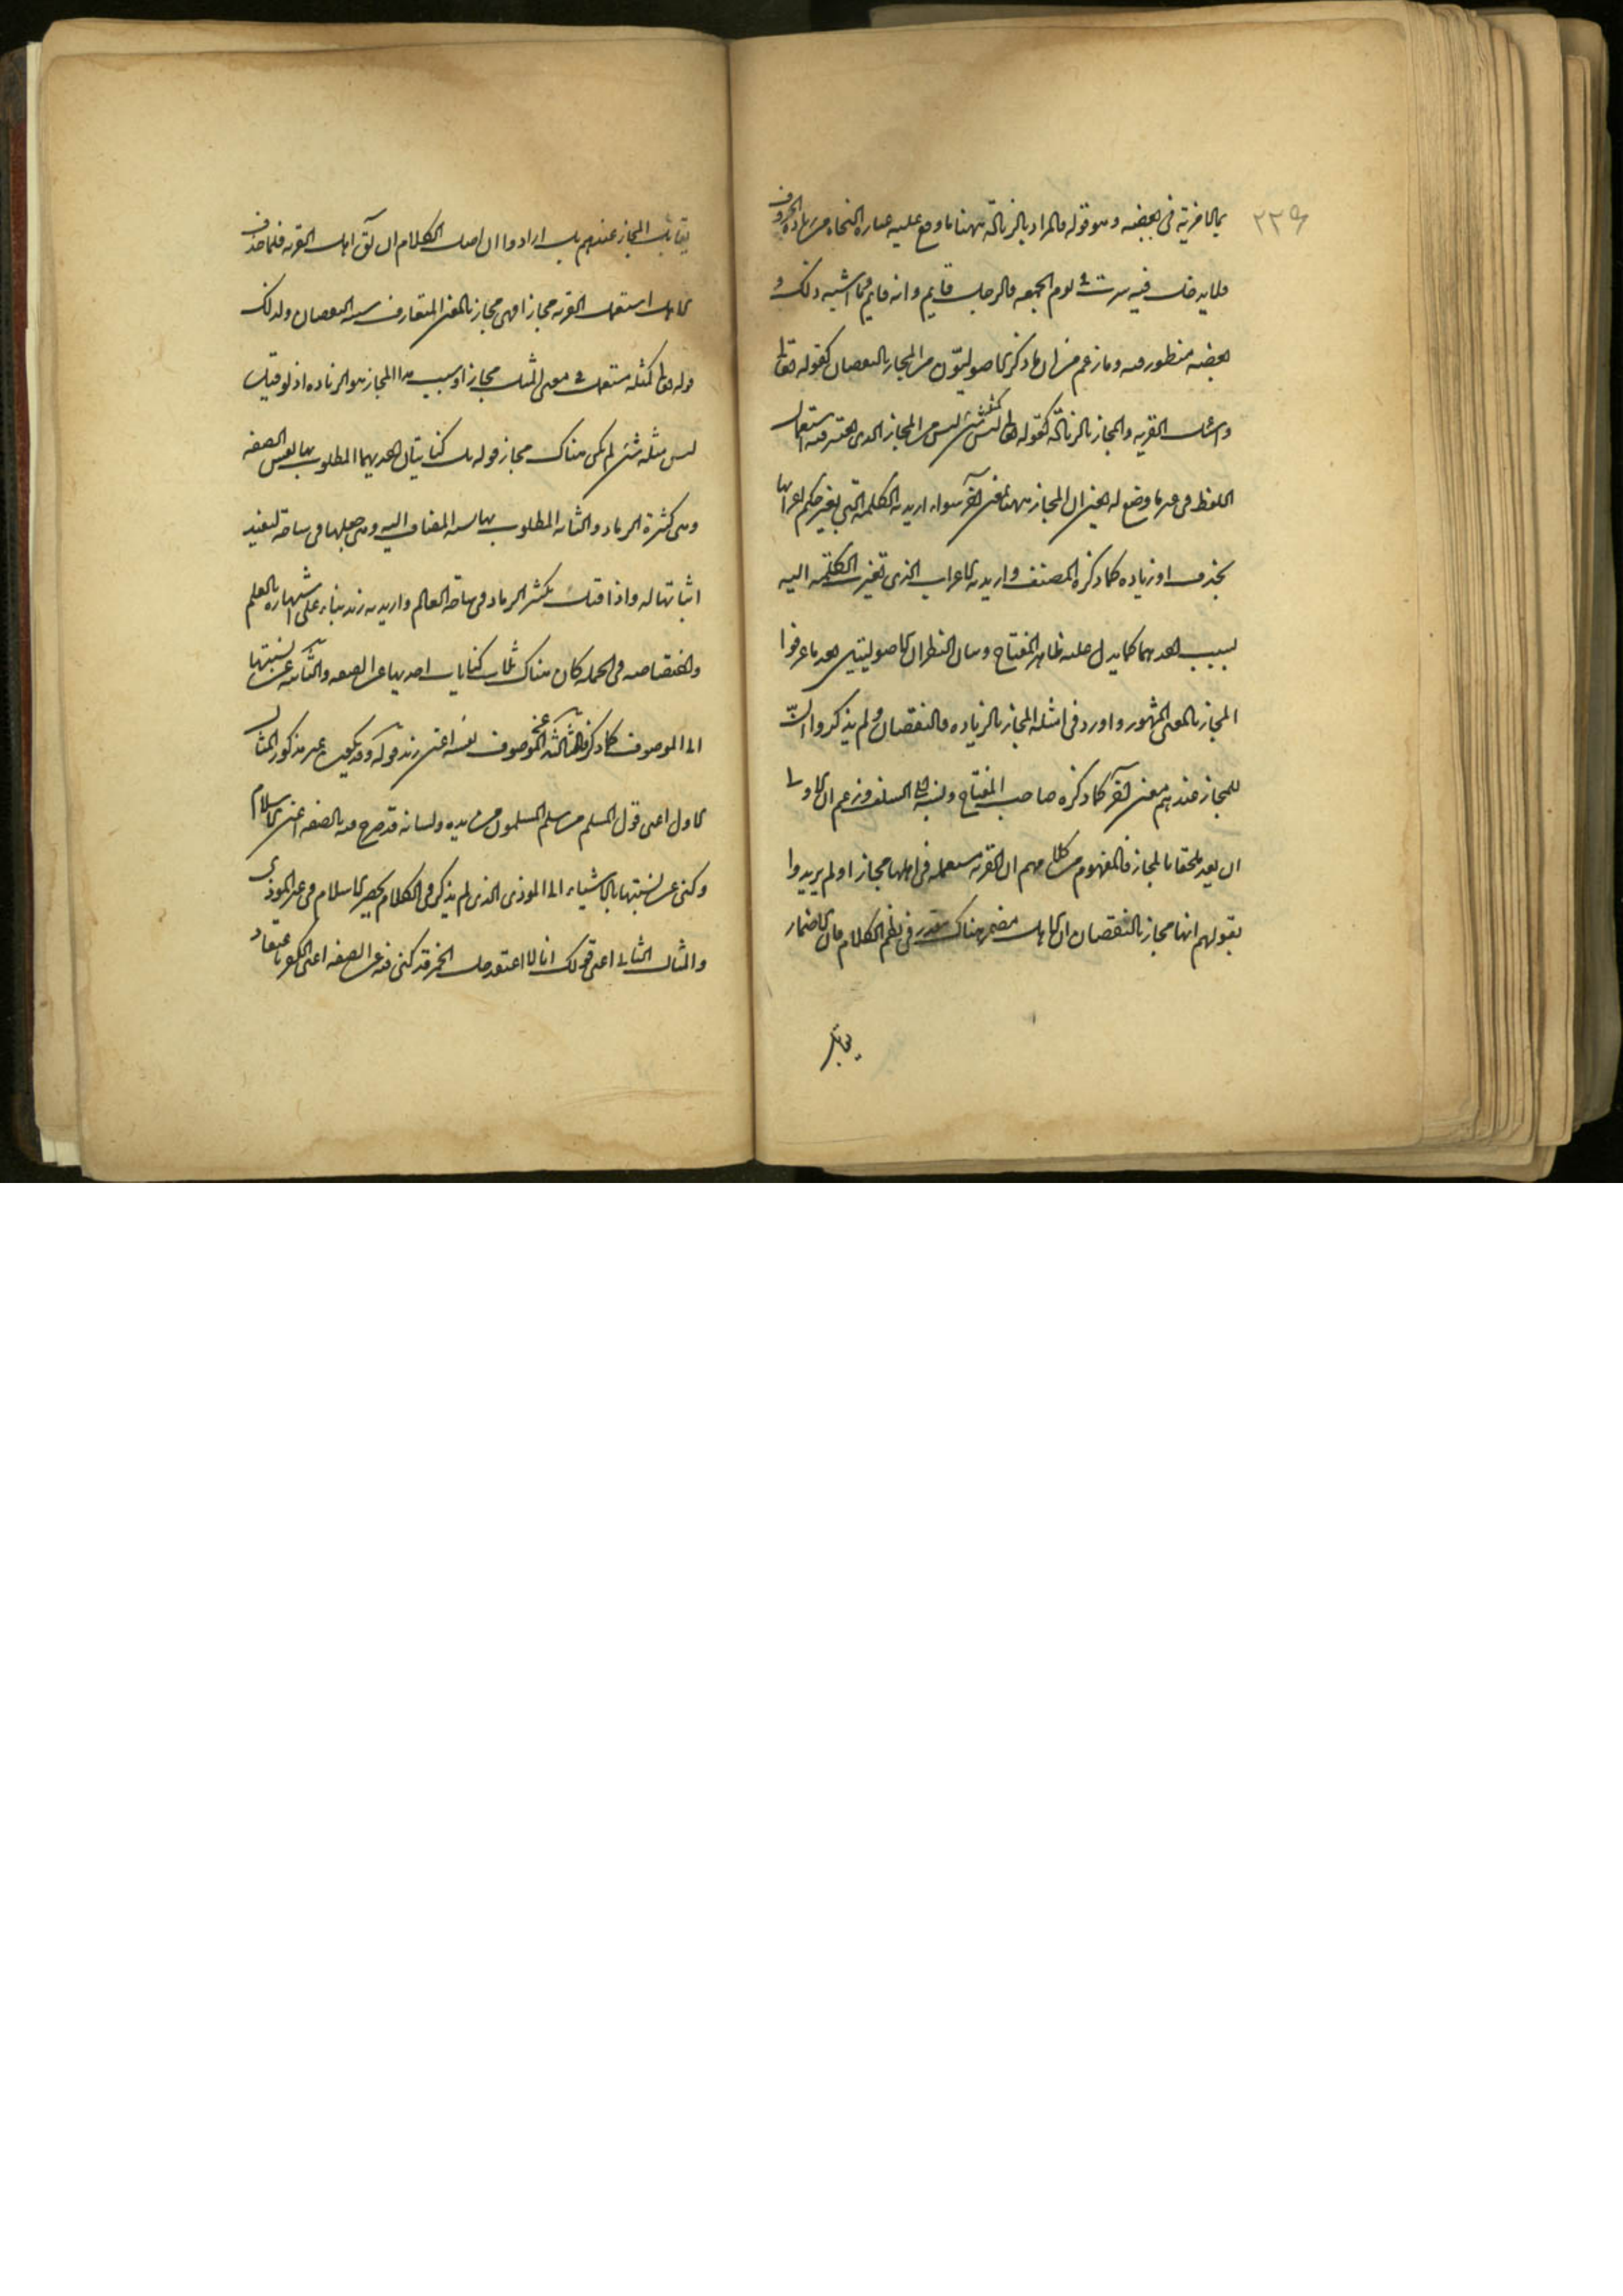 ٢٢٩
بما لا مزية في بعضه وهو قوله فالمراد بالزيادة ههنا ما وقع عليه عبارة النحاة من زيادة الحروف
فلا يدخل فيه سرت في يوم الجمعة والرجل قايم وانه قايم وما اشبه ذلك و
بعضه منظور فيه وما زعم من ان ما ذكره الاصوليون من المجاز بالنقصان كقوله تعالى
واسئل القرية والمجاز بالزيادة كقوله تعالى ليس كمثله شئ ليس من المجاز الذي يعتبر فيه استعمال
اللفظ في غير ما وضع له يعني ان المجاز ههنا بمعنى آخر سواء اريد به الكلمة التي تغير حكم اعرابها
بحذف او زيادة كما ذكره المصنف او اريد به الاعراب الذي تغيرت الكلمة اليه
بسبب احدهما كما يدل عليه ظاهر المفتاح وبيان النظر ان الاصوليين بعد ما عرفوا
المجاز بالمعنى المشهور واورد في امثلة المجاز بالزيادة والنقصان ولم يذكروا ان
للمجاز عندهم معنى آخر كما ذكره صاحب المفتاح ونسبه الى السلف وزعم ان الاولى
ان يعد ملحقا بالمجاز فالمفهوم من كلامهم ان القرية مستعملة في اهلها مجازا ولم يريدوا
بقولهم انها مجاز بالنقصان ان الاهل مضمر هناك مقدر في نظم الكلام فان الاضمار
يقابل
يقابل المجاز عندهم بل ارادوا ان اصل الكلام ان يقال اهل القرية فلما حذف
الاهل استعمل القرية مجازا فهي مجاز بالمعنى المتعارف سببه النقصان وكذلك
قوله تعالى كمثله مستعمل في معنى المثل مجازا وسبب هذا المجاز هو الزيادة اذ لو قيل
ليس مثله شئ لم يكن هناك مجاز قوله بل كنايتان احديهما المطلوب بها نفس الصفة
وهي كثرة الرماد والثانية المطلوب بها نسبة المضاف اليه وهي جعلها في ساحته ليفيد
اثباتها له واذا قلت يكثر الرماد في ساحة العالم واريد به زيد بناء على اشتهاره بالعلم
واختصاصه في الجملة كان هناك ثلث كنايات احديها عن الصفة والثانية عن نسبتها
الى الموصوف كما ذكر والثالثة عن الموصوف نفسه اعني زيد قوله وقد يكون غير مذكور المثال
الاول اعني قول المسلم من سلم المسلمون من يده ولسانه قد صرح فيه بالصفة اعني الاسلام
وكنى عن نسبتها بالاشياء الى الموذي الذي لم يذكر في الكلام بحصر الاسلام في غير الموذي
والمثال الثاني اعني قولك انا لا اعتقد حل الخمر قد كنى فيه عن الصفة اعني الكفر باعتقاد